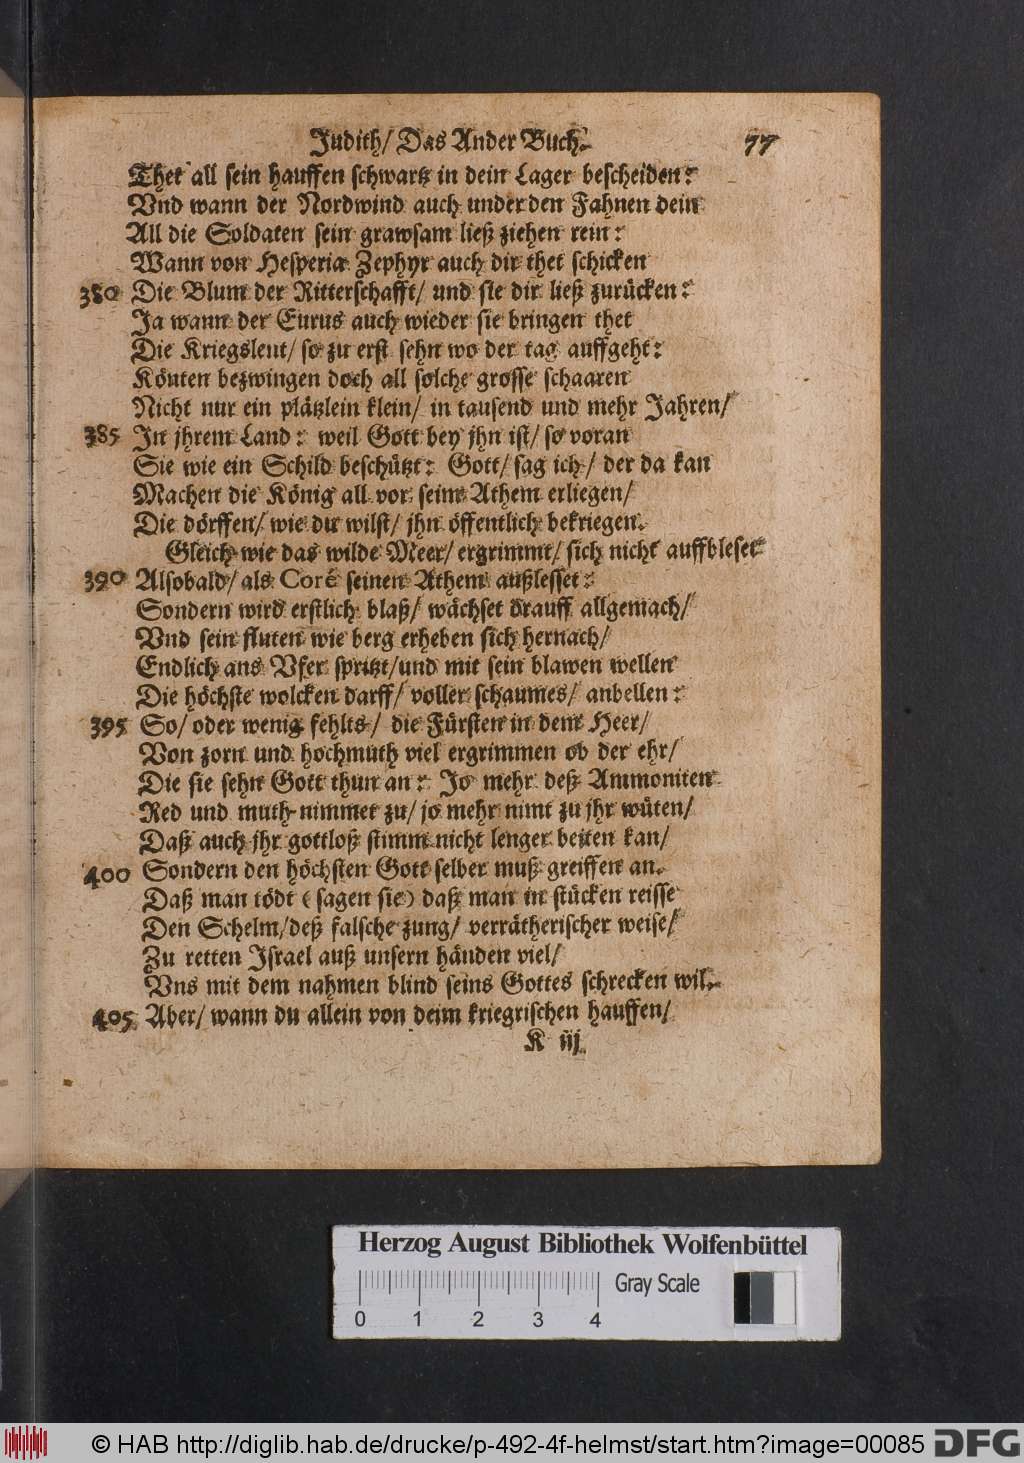 Judith/ Das Ander Buch. 77
Thet all sein hauffen schwartz in dein Lager bescheiden:
Vnd wann der Nordwind auch under den Fahnen dein
All die Soldaten sein grawsam ließ ziehen rein:
Wann von Hesperia Zephyr auch dir thet schicken
380 Die Blum der Ritterschafft/ und sie dir ließ zurücken:
Ja wann der Eurus auch wieder sie bringen thet
Die Kriegsleut/ so zu erst sehn wo der tag auffgeht:
Könten bezwingen doch all solche grosse schaaren
Nicht nur ein plätzlein klein/ in tausend und mehr Jahren/
385 In jhrem Land: weil Gott bey jhn ist/ so voran
Sie wie ein Schild beschützt: Gott/ sag ich/ der da kan
Machen die König all vor seim Athem erliegen/
Die dörffen/ wie du wilst/ jhn öffentlich bekriegen.
Gleich wie das wilde Meer/ ergrimmt/ sich nicht auffbleset
390 Alsobald/ als Coré seinen Athem außlesset:
Sondern wird erstlich blaß/ wächset drauff allgemach/
Vnd sein fluten wie berg erheben sich hernach/
Endlich ans Vfer spritzt/ und mit sein blawen wellen
Die höchste wolcken darff/ voller schaumes/ anbellen:
395 So/ oder wenig fehlts/ die Fürsten in dem Heer/
Von zorn und hochmuth viel ergrimmen ob der ehr/
Die sie sehn Gott thun an: Jo mehr deß Ammoniten
Red und muth nimmet zu/ jo mehr nimt zu jhr wüten/
Daß auch jhr gottloß stimm nicht lenger beiten kan/
400 Sondern den höchsten Gott selber muß greiffen an.
Daß man tödt (sagen sie) daß man in stücken reisse
Den Schelm/ deß falsche zung/ verrätherischer weise/
Zu retten Israel auß unsern händen viel/
Vns mit dem nahmen blind seins Gottes schrecken wil.
405 Aber/ wann du allein von deim kriegrischen hauffen/
K iij
Herzog August Bibliothek Wolfenbüttel
Gray Scale
0 1 2 3 4
© HAB http://diglib.hab.de/drucke/p-492-4f-helmst/start.htm?image=00085 DFG